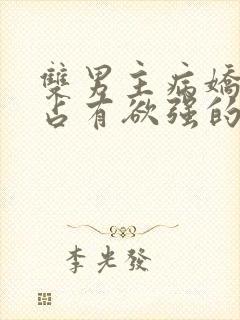 雙男主病嬌
占有欲強的
李光發